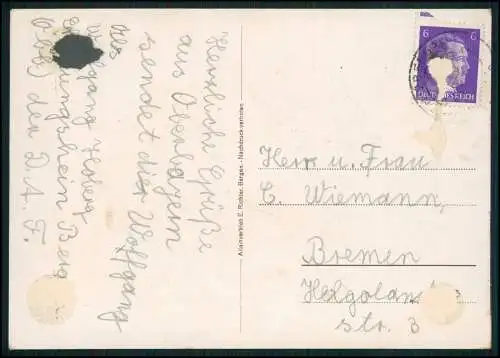 Herzliche Grüße
aus Oberbayern
sendet dir Wolfgang
Abs
Wolfgang Hoberg
Erholungsheim Berg
Obb) der D.A.F.
Alleinvertrieb E. Richter, Bergen - Nachdruck verboten
6 6
DEUTSCHES REICH
Herr u. Frau
C. Wiemann,
Bremen
Helgolander
str. 3